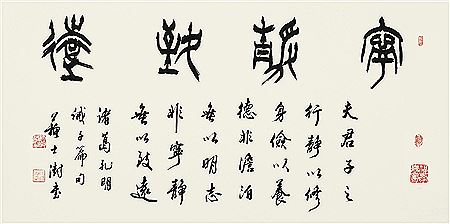 寧静致遠
夫君子之
行静以修
身儉以養
德非澹泊
無以明志
非寧静
無以致遠
諸葛孔明
誡子篇句
士澍書